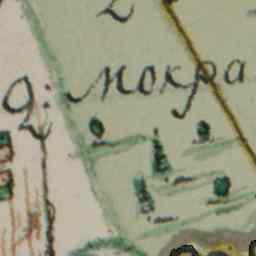 д: мокра